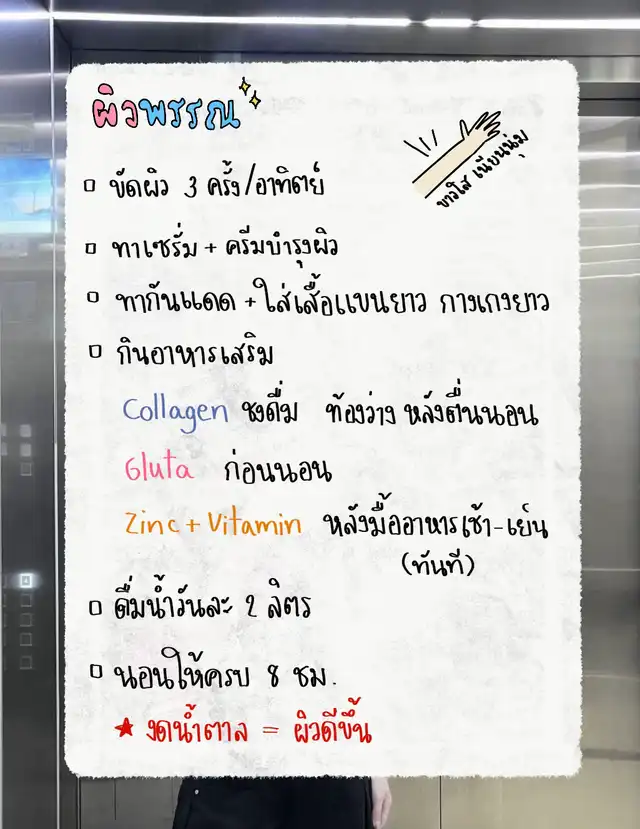 ผิวพรรณ
ขาวใส เนียนนุ่ม
ขัดผิว 3 ครั้ง/อาทิตย์
ทาเซรั่ม + ครีมบำรุงผิว
ทากันแดด + ใส่เสื้อแขนยาว กางเกงยาว
กินอาหารเสริม
Collagen ชงดื่ม ท้องว่าง หลังตื่นนอน
Gluta ก่อนนอน
Zinc + Vitamin หลังมื้ออาหารเช้า-เย็น
(ทันที)
ดื่มน้ำวันละ 2 ลิตร
นอนให้ครบ 8 ชม.
★ งดน้ำตาล = ผิวดีขึ้น